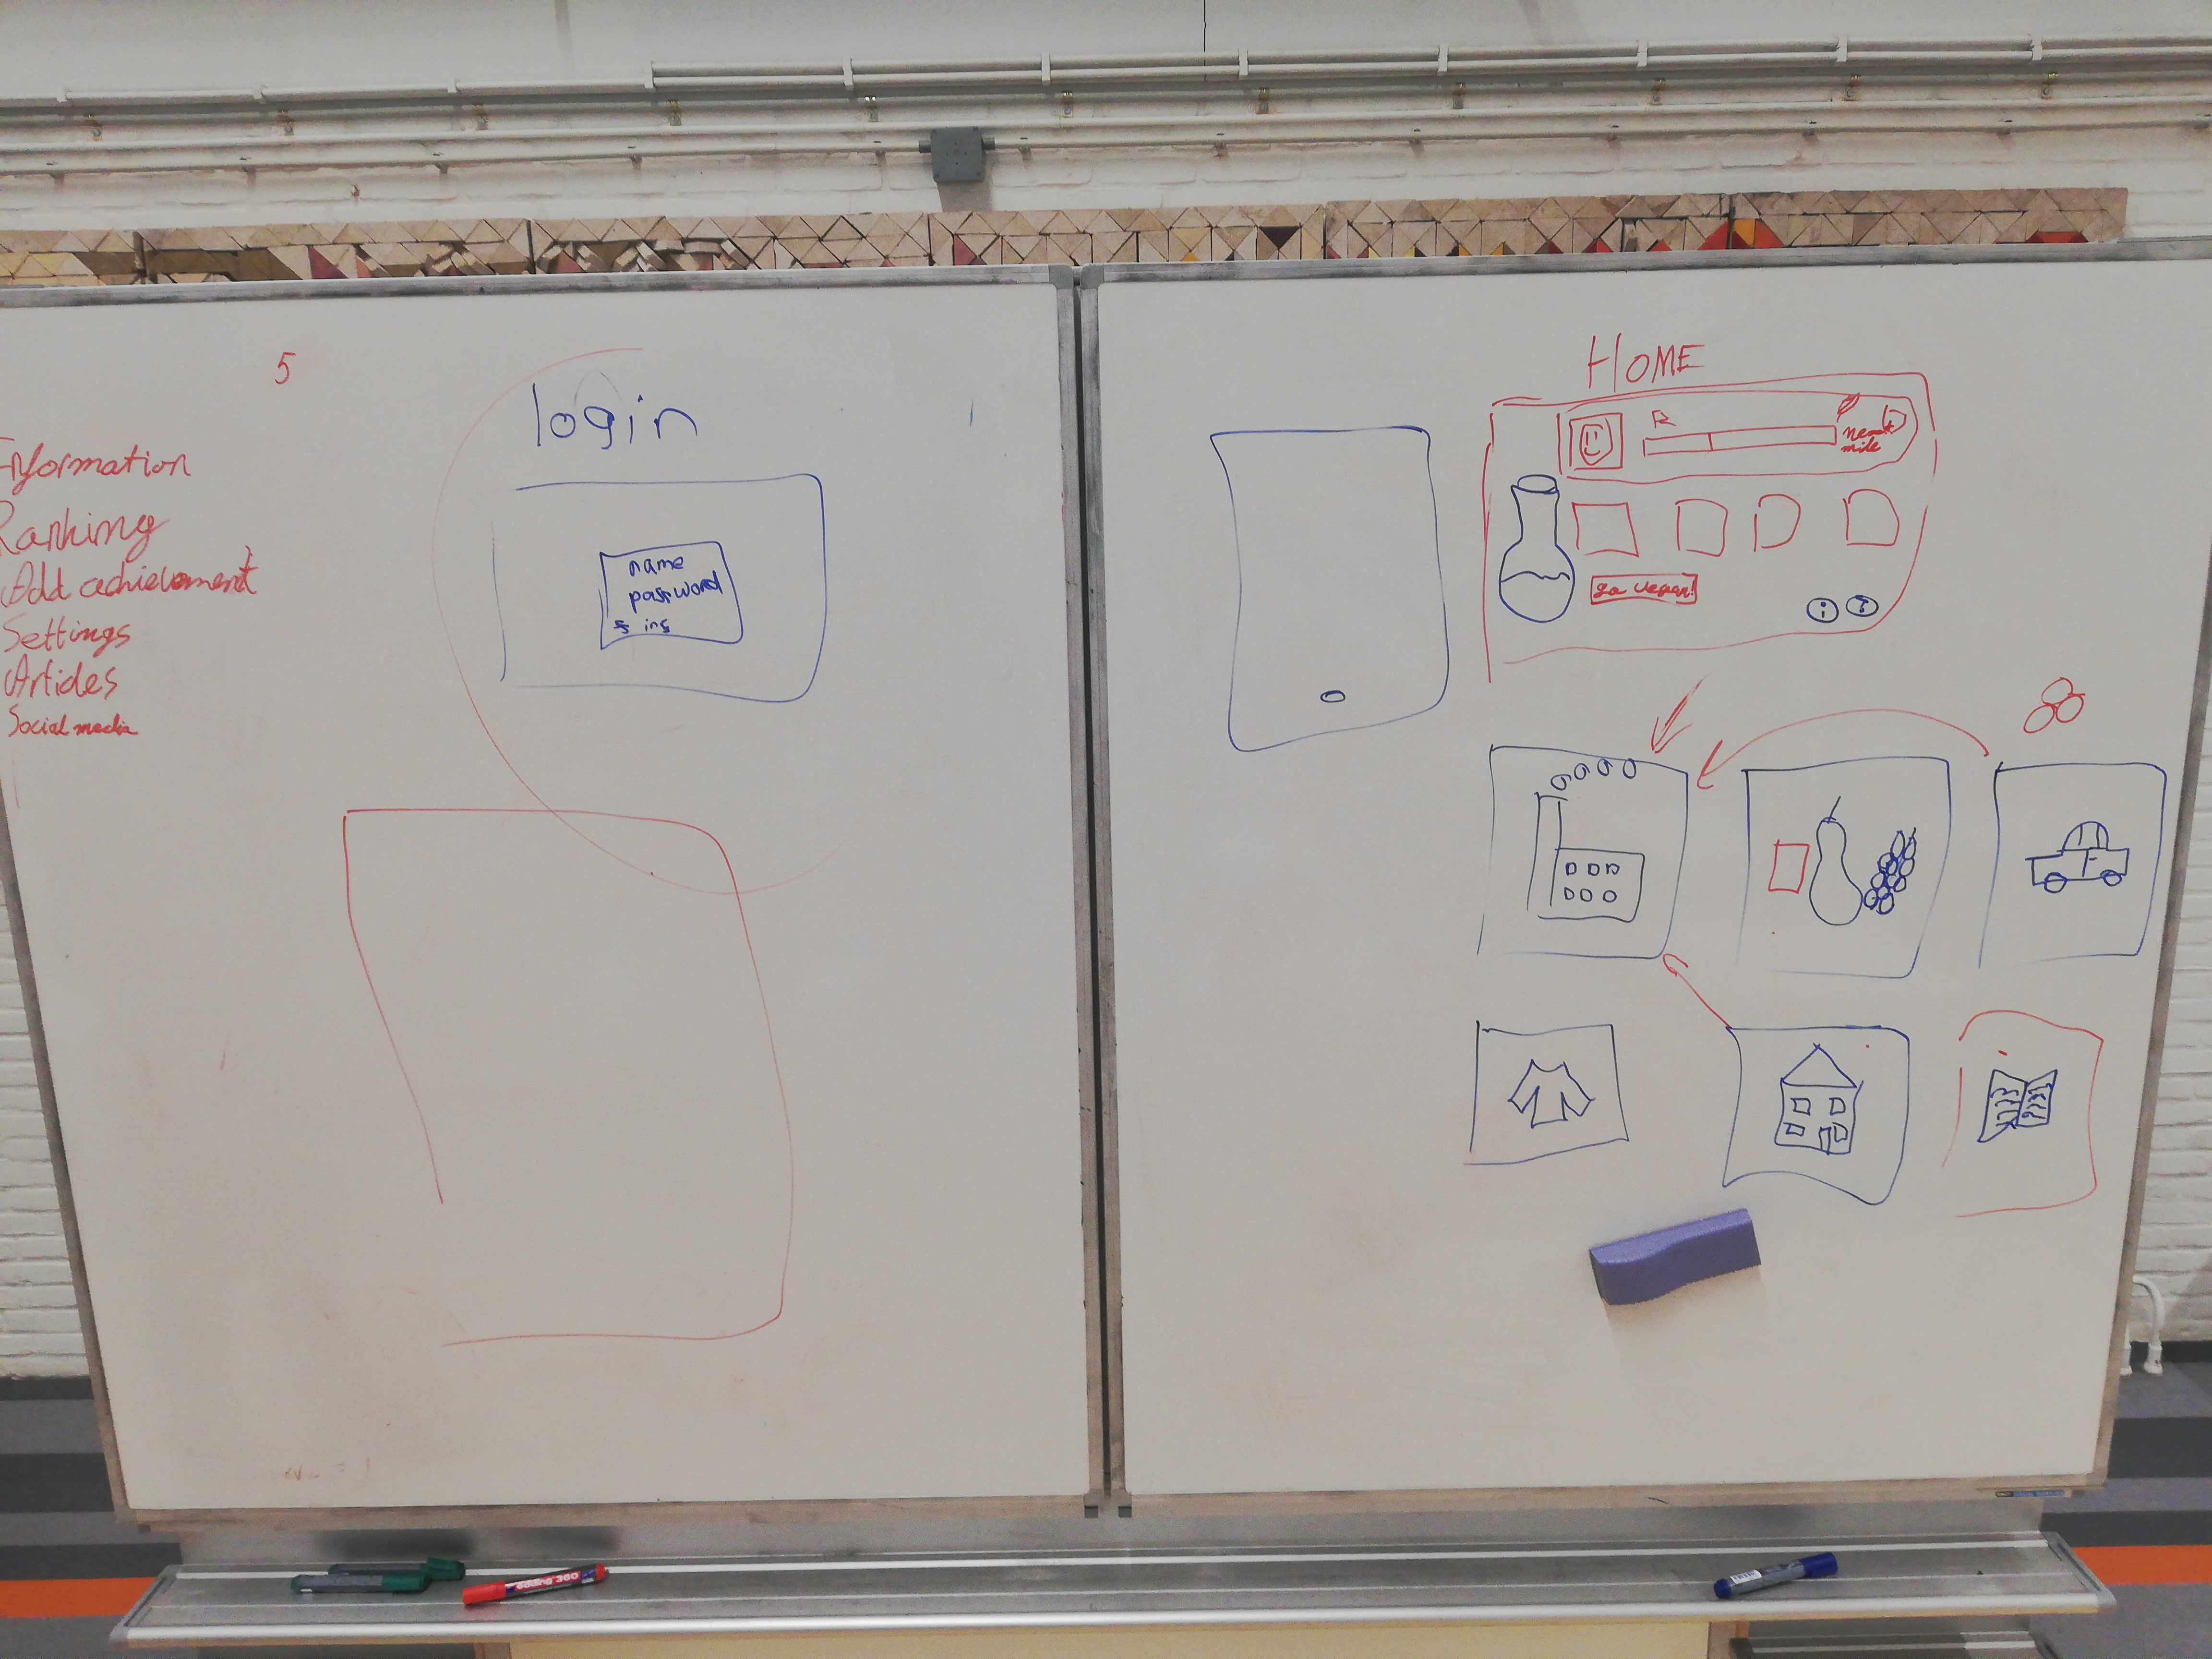 5
Information
Ranking
Add achievement
Settings
Articles
Social media
login
name
password
HOME
next
mile
go vegan!
i
?
edding 360